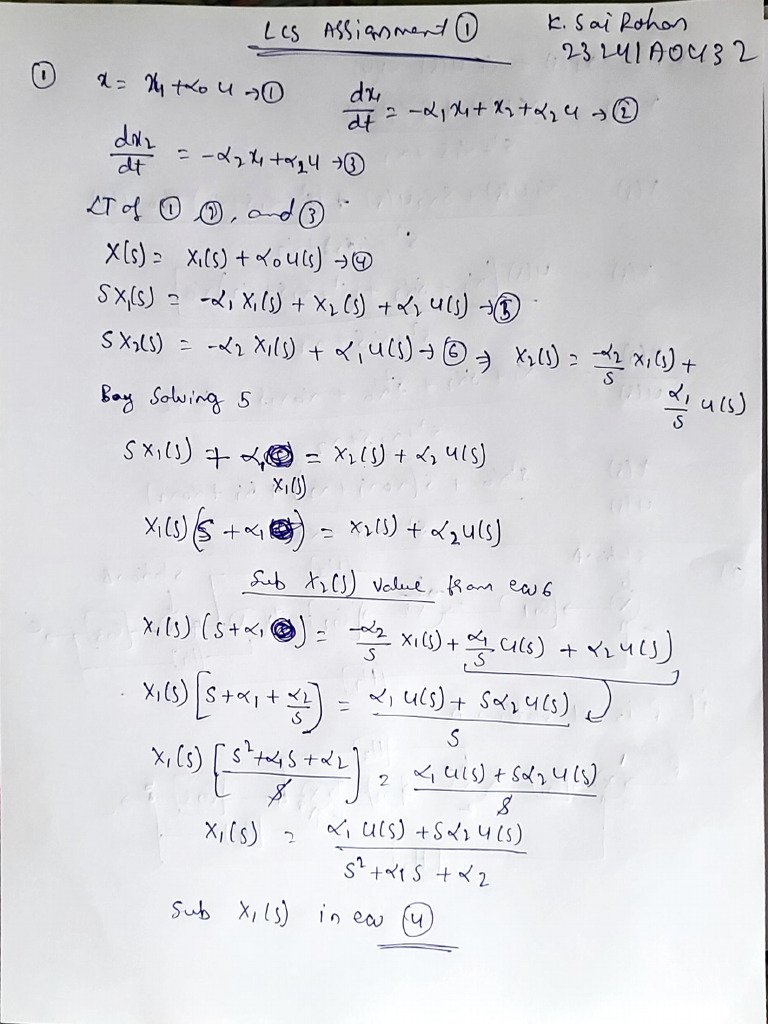 LCS Assignment ①
K. Sai Rohan
23241A0432
① x = x₁ + α₀ u → ①
dx₁/dt = -α₁x₁ + x₂ + α₂ u → ②
dx₂/dt = -α₂x₁ + α₂u → ③
LT of ① ②, and ③
X(s) = X₁(s) + α₀ u(s) → ④
SX₁(s) = -α₁ X₁(s) + X₂(s) + α₂ u(s) → ⑤
SX₂(s) = -α₂ X₁(s) + α₁ u(s) → ⑥ ⇒ X₂(s) = -α₂/s X₁(s) +
α₁/s u(s)
Bay Solving 5
SX₁(s) + α₁ = X₂(s) + α₂ u(s)
X₁(s)
X₁(s) (S + α₁) = X₂(s) + α₂u(s)
Sub X₂(s) value from eq 6
X₁(s) (S + α₁) = -α₂/s X₁(s) + α₁/s u(s) + α₂ u(s)
X₁(s) [S + α₁ + α₂/s] = α₁ u(s) + Sα₂ u(s) / S
X₁(s) [S² + α₁S + α₂ / S] = α₁ u(s) + Sα₂ u(s) / S
X₁(s) = α₁ u(s) + Sα₂ u(s) / S² + α₁ S + α₂
Sub X₁(s) in eq ④